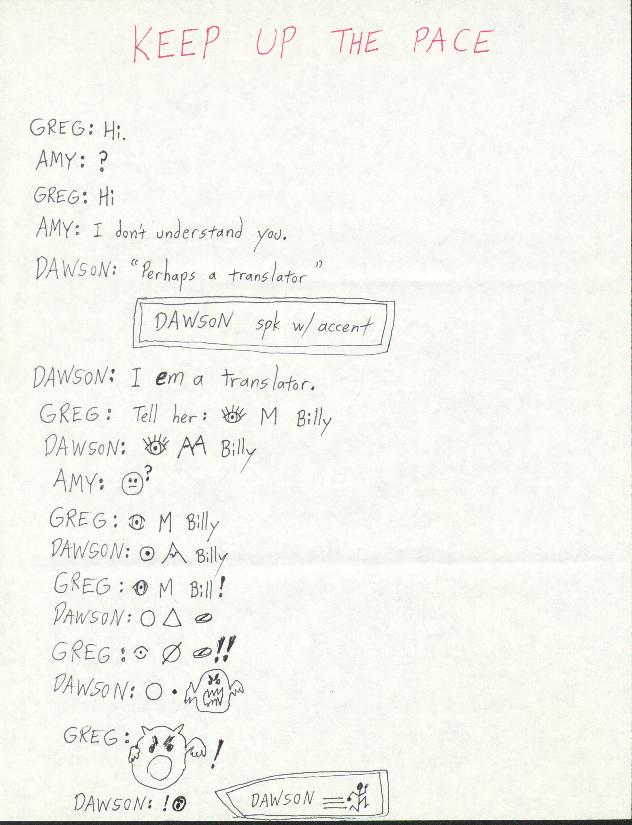 KEEP UP THE PACE
GREG: Hi.
AMY: ?
GREG: Hi
AMY: I don't understand you.
DAWSON: "Perhaps a translator"
DAWSON spk w/ accent
DAWSON: I em a translator.
GREG: Tell her: M Billy
DAWSON: AA Billy
AMY: ?
GREG: M Billy
DAWSON: Billy
GREG: M Bill!
DAWSON:
GREG: !!
DAWSON:
GREG: !
DAWSON: !
DAWSON